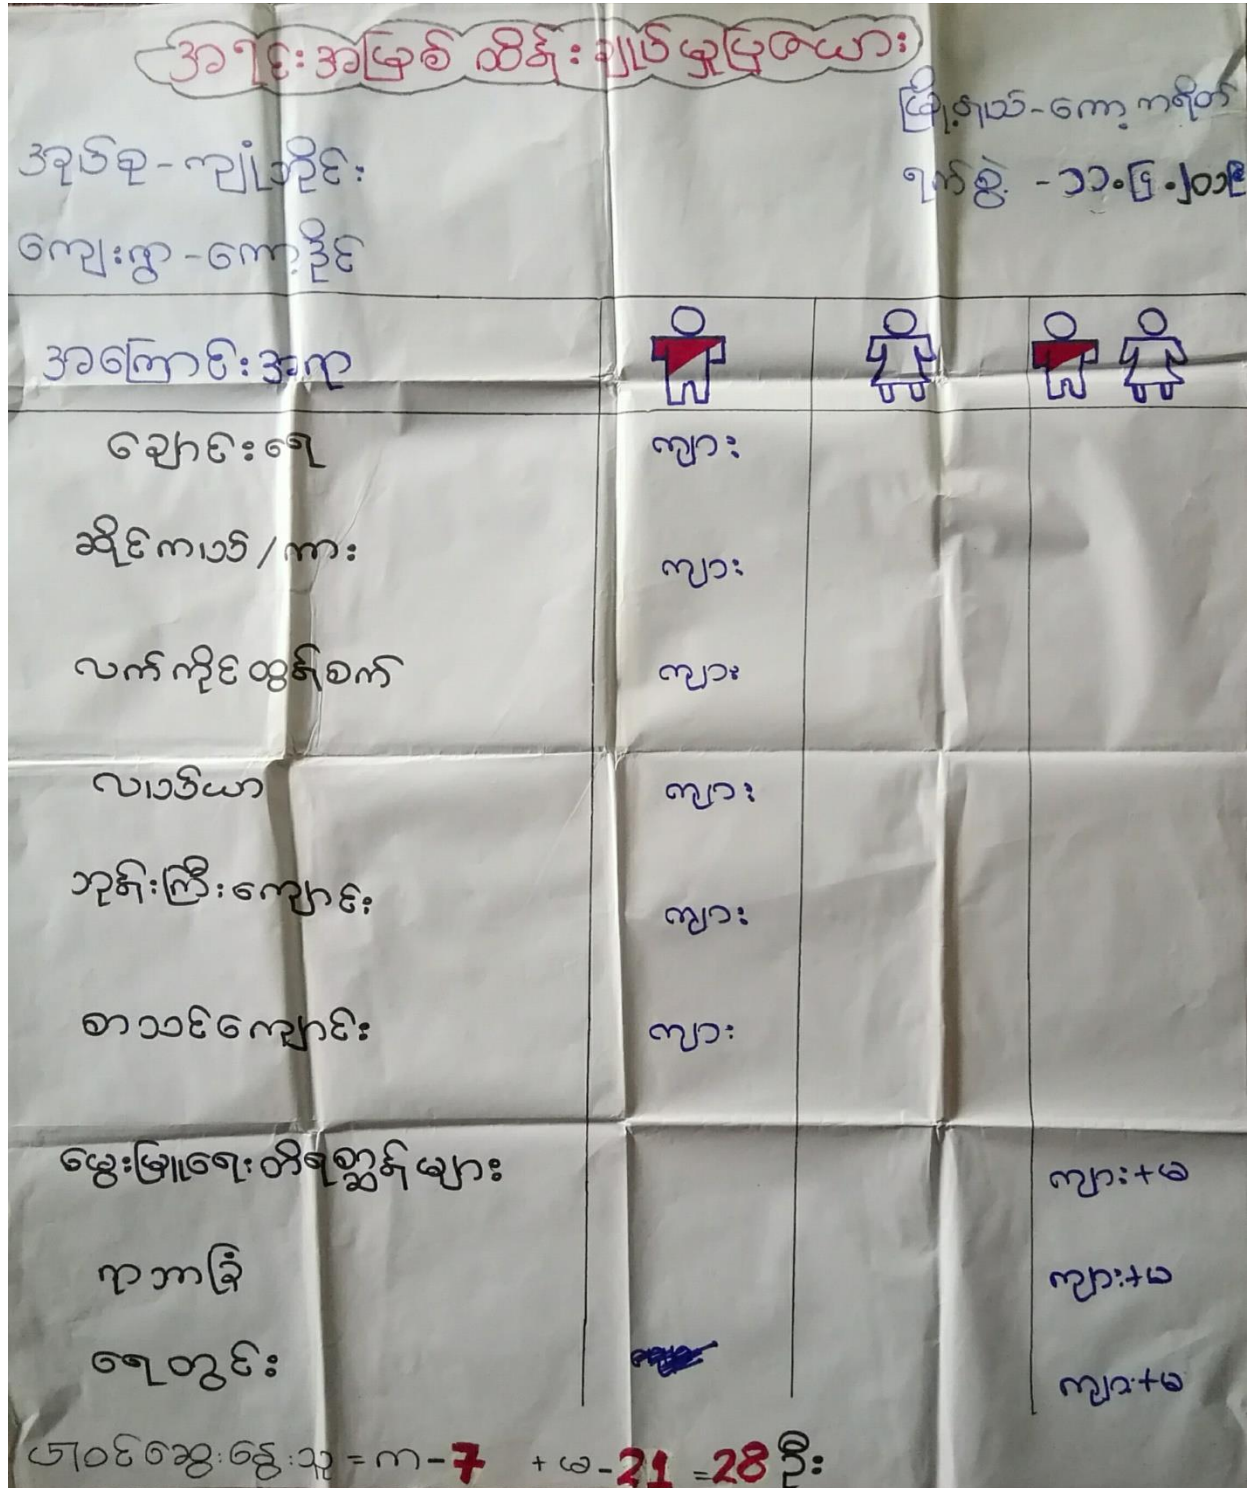 အရင်းအမြစ် ထိန်းချုပ်မှုပြဇယား
မြို့နယ်-ကော့ကရိတ်
အုပ်စု-ကျုံဘိုင်း
ရက်စွဲ - ၁၁.၄.၂၀၁၉
ကျေးရွာ-ကော့ဒိုင်
အကြောင်းအရာ
ချောင်းရေ ကျား
ဆိုင်ကယ်/ကား ကျား
လက်ကိုင်ထွန်စက် ကျား
လယ်ယာ ကျား
ဘုန်းကြီးကျောင်း ကျား
စာသင်ကျောင်း ကျား
မွေးမြူရေးတိရစ္ဆာန်များ ကျား+မ
ရာဘာခြံ ကျား+မ
ရေတွင်း ကျား+မ
ပါဝင်ဆွေးနွေးသူ = ကာ-7 + မ-21 =28 ဦး